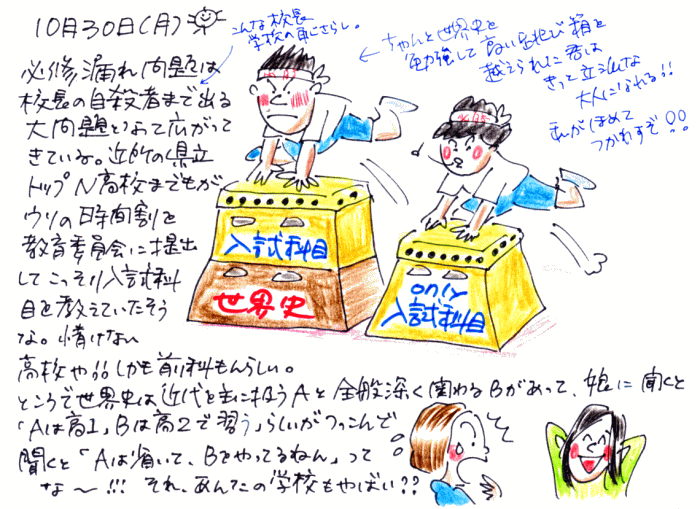 10月30日(月)
こんな校長
学校の恥さらし。
←ちゃんと世界史を
勉強して高い跳び箱を
越えられた君は
きっと立派な
大人になれる!!
私がほめて
つかわすぞ!!
必修漏れ問題は
校長の自殺者まで出る
大問題となって広がって
きている。近所の県立
トップN高校までもが
ウソの時間割を
教育委員会に提出
してこっそり入試科
目を教えていたそう
な。情けない
高校や。しかも前科もんらしい。
ところで世界史は近代を主に扱うAと全般深く関わるBがあって、娘に聞くと
「Aは高1、Bは高2で習う」らしいがつっこんで
聞くと「Aは省いて、Bをやってるねん」って
な〜!!! それ、あんたの学校もやばい??
入試科目
世界史
only
入試科目